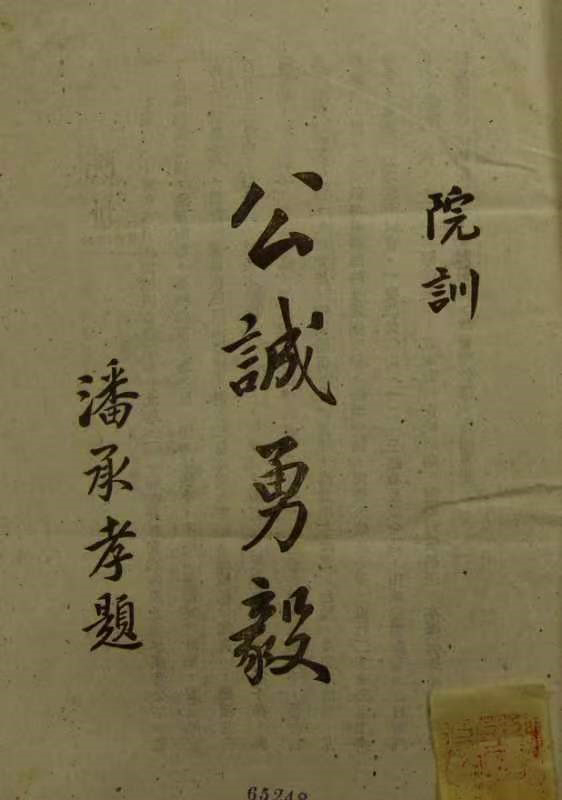 院訓
公誠勇毅
潘承孝題